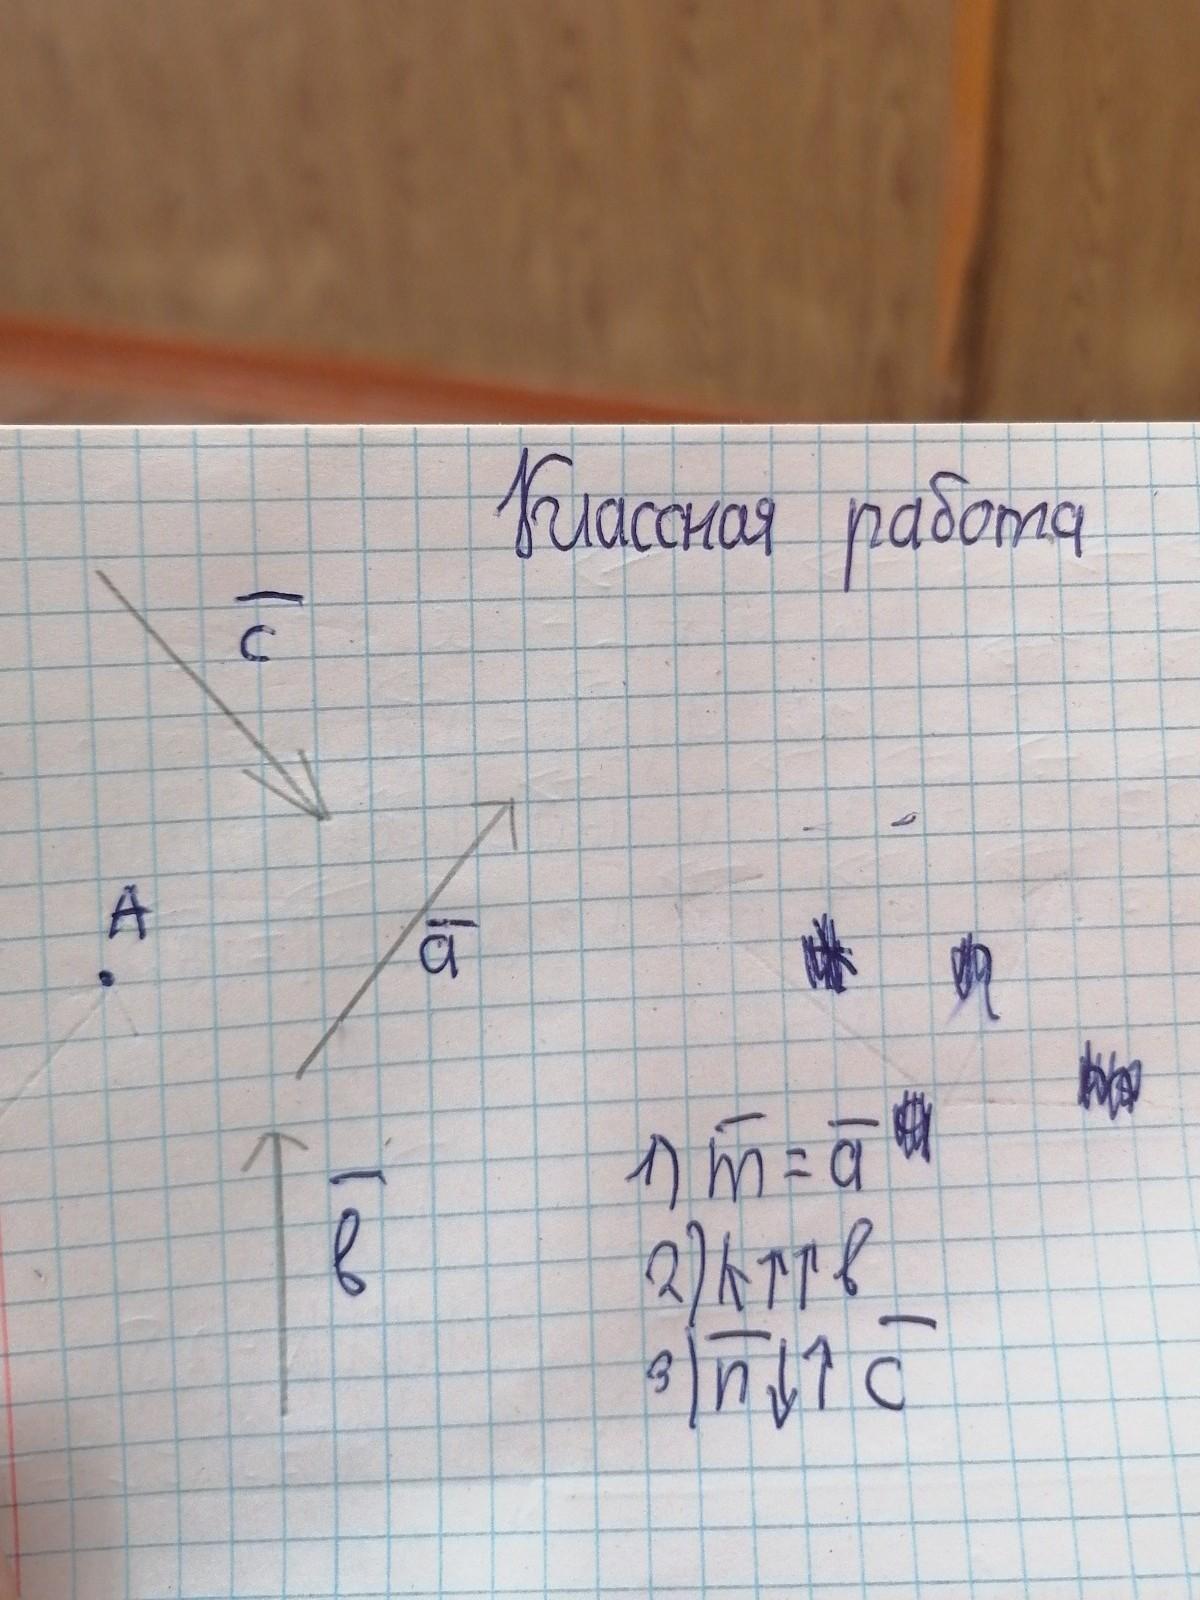 Классная работа
c̅
A
a̅
b̅
1) m̅ = a̅
2) k↑↑b
3) n̅↓↑ c̅